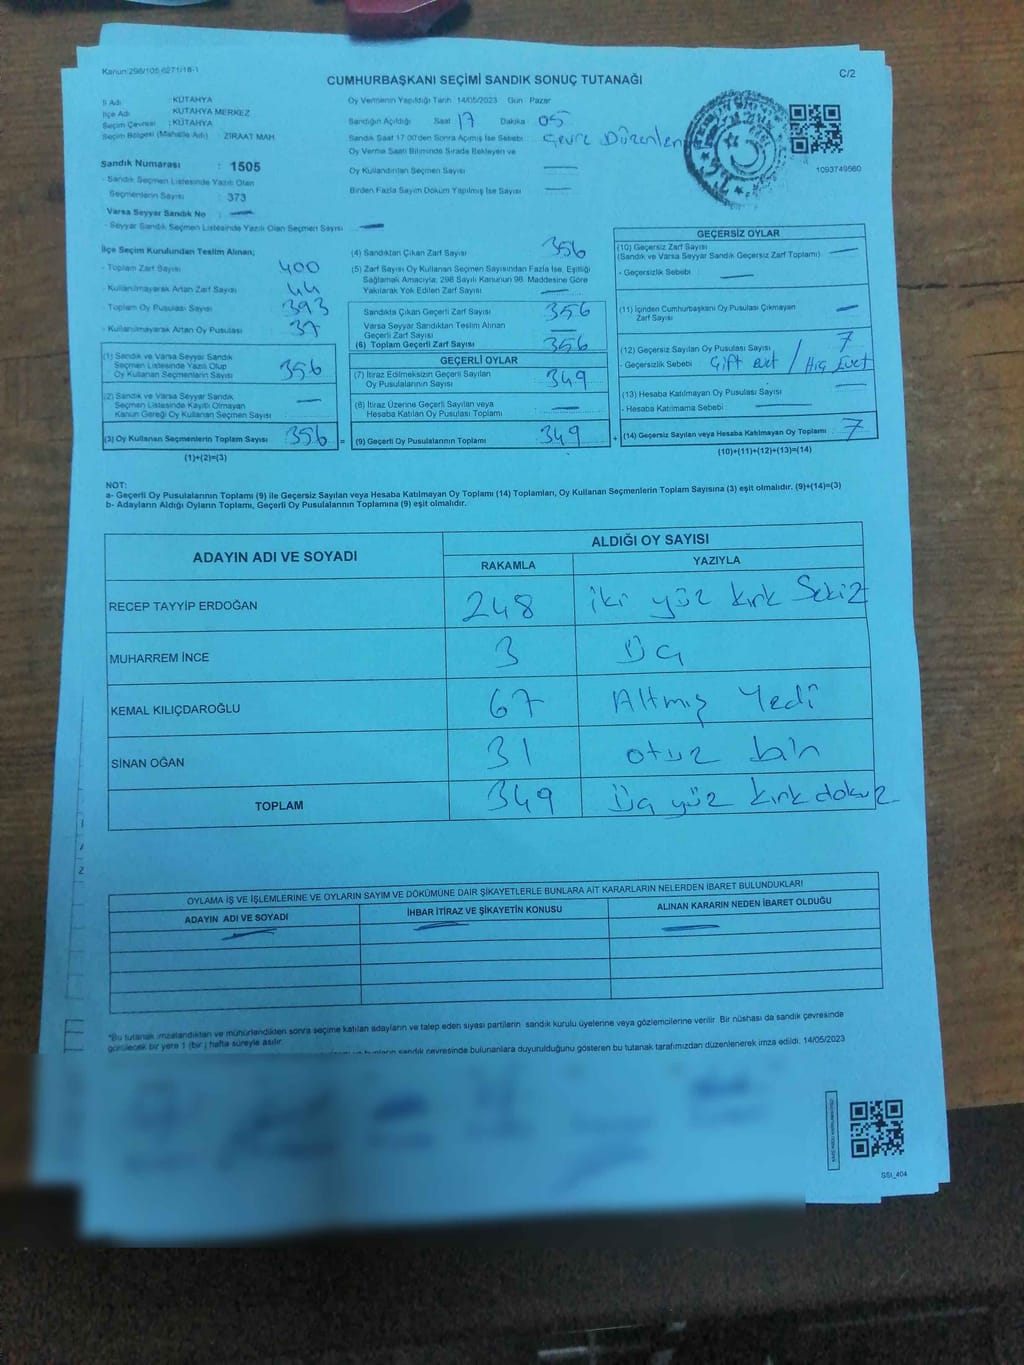 Kanun:298/105 6271/18-1
CUMHURBAŞKANI SEÇİMİ SANDIK SONUÇ TUTANAĞI
C/2
İl Adı : KÜTAHYA
İlçe Adı : KÜTAHYA MERKEZ
Seçim Çevresi : KÜTAHYA
Seçim Bölgesi (Mahalle Adı) : ZİRAAT MAH.
Oy Vermenin Yapıldığı Tarih 14/05/2023 Gün Pazar
Sandığın Açıldığı Saat 17 Dakika 05
Sandık Saat 17.00'den Sonra Açılmış İse Sebebi Çevre Düzenlen
Oy Verme Saati Bitiminde Sırada Bekleyen ve
Oy Kullandırılan Seçmen Sayısı —
Birden Fazla Sayım Döküm Yapılmış İse Sayısı —
1093749560
Sandık Numarası : 1505
- Sandık Seçmen Listesinde Yazılı Olan
Seçmenlerin Sayısı : 373
Varsa Seyyar Sandık No : —
- Seyyar Sandık Seçmen Listesinde Yazılı Olan Seçmen Sayısı : —
İlçe Seçim Kurulundan Teslim Alınan;
- Toplam Zarf Sayısı 400
- Kullanılmayarak Artan Zarf Sayısı 44
- Toplam Oy Pusulası Sayısı 393
- Kullanılmayarak Artan Oy Pusulası 37
(1) Sandık ve Varsa Seyyar Sandık
Seçmen Listesinde Yazılı Olup
Oy Kullanan Seçmenlerin Sayısı 356
(2) Sandık ve Varsa Seyyar Sandık
Seçmen Listesinde Kayıtlı Olmayan
Kanun Gereği Oy Kullanan Seçmen Sayısı —
(3) Oy Kullanan Seçmenlerin Toplam Sayısı 356 =
(1)+(2)=(3)
(4) Sandıktan Çıkan Zarf Sayısı 356
(5) Zarf Sayısı Oy Kullanan Seçmen Sayısından Fazla İse, Eşitliği
Sağlamak Amacıyla, 298 Sayılı Kanunun 98. Maddesine Göre
Yakılarak Yok Edilen Zarf Sayısı —
Sandıkta Çıkan Geçerli Zarf Sayısı 356
Varsa Seyyar Sandıktan Teslim Alınan
Geçerli Zarf Sayısı —
(6) Toplam Geçerli Zarf Sayısı 356
GEÇERLİ OYLAR
(7) İtiraz Edilmeksizin Geçerli Sayılan
Oy Pusulalarının Sayısı 349
(8) İtiraz Üzerine Geçerli Sayılan veya
Hesaba Katılan Oy Pusulası Toplamı —
(9) Geçerli Oy Pusulalarının Toplamı 349 +
GEÇERSİZ OYLAR
(10) Geçersiz Zarf Sayısı
(Sandık ve Varsa Seyyar Sandık Geçersiz Zarf Toplamı) —
- Geçersizlik Sebebi : —
(11) İçinden Cumhurbaşkanı Oy Pusulası Çıkmayan
Zarf Sayısı —
(12) Geçersiz Sayılan Oy Pusulası Sayısı 7
- Geçersizlik Sebebi Çift Evet / Hiç Evet
(13) Hesaba Katılmayan Oy Pusulası Sayısı —
- Hesaba Katılmama Sebebi : —
(14) Geçersiz Sayılan veya Hesaba Katılmayan Oy Toplamı : 7
(10)+(11)+(12)+(13)=(14)
NOT:
a- Geçerli Oy Pusulalarının Toplamı (9) ile Geçersiz Sayılan veya Hesaba Katılmayan Oy Toplamı (14) Toplamları, Oy Kullanan Seçmenlerin Toplam Sayısına (3) eşit olmalıdır. (9)+(14)=(3)
b- Adayların Aldığı Oyların Toplamı, Geçerli Oy Pusulalarının Toplamına (9) eşit olmalıdır.
ADAYIN ADI VE SOYADI
ALDIĞI OY SAYISI
RAKAMLA YAZIYLA
RECEP TAYYİP ERDOĞAN 248 iki yüz kırk Sekiz
MUHARREM İNCE 3 Üç
KEMAL KILIÇDAROĞLU 67 Altmış Yedi
SİNAN OĞAN 31 otuz bir
TOPLAM 349 Üç yüz kırk dokuz
OYLAMA İŞ VE İŞLEMLERİNE VE OYLARIN SAYIM VE DÖKÜMÜNE DAİR ŞİKAYETLERLE BUNLARA AİT KARARLARIN NELERDEN İBARET BULUNDUKLARI
ADAYIN ADI VE SOYADI İHBAR İTİRAZ VE ŞİKAYETİN KONUSU ALINAN KARARIN NEDEN İBARET OLDUĞU
— — —
*Bu tutanak imzalandıktan ve mühürlendikten sonra seçime katılan adayların ve talep eden siyasi partilerin sandık kurulu üyelerine veya gözlemcilerine verilir. Bir nüshası da sandık çevresinde
görülecek bir yere 1 (bir) hafta süreyle asılır.
bunların sandık çevresinde bulunanlara duyurulduğunu gösteren bu tutanak tarafımızdan düzenlenerek imza edildi. 14/05/2023
GSI_404